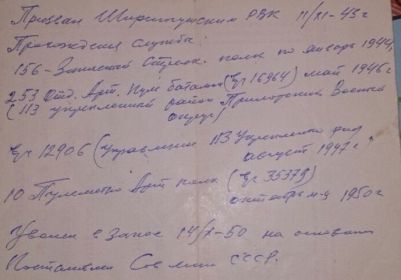 Призван Ширингушским РВК 11/XI-43 г
Прохождения службы:
156-Запасной Стрелк. полк по январь 1944,
253 Отд. Арт. Пул батальон (вч 16964) май 1946 г
(113 укрепленный район Приморский Военный
округ)
вч 12906 (управление 113 Укреплен
август 1947 г
10 Пулеметно Арт полк (вч 35379)
октябрь м-ц 1950 г
Уволен в Запас 14/X-50 на основан
Постановлен Сов мин СССР.